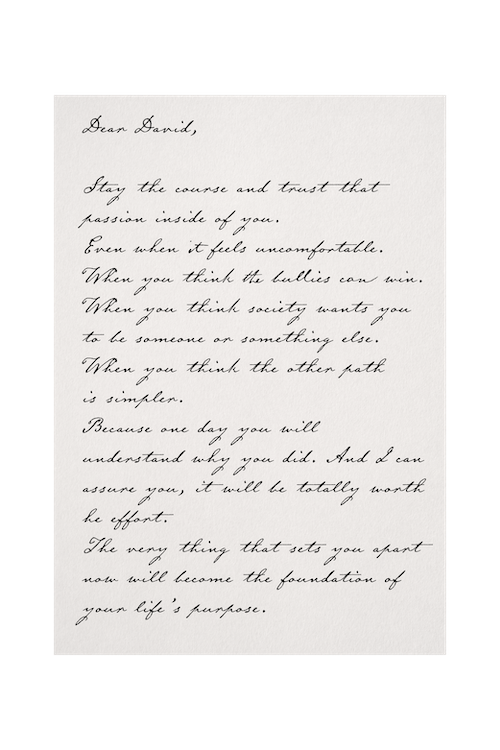 Dear David,
Stay the course and trust that
passion inside of you.
Even when it feels uncomfortable.
When you think the bullies can win.
When you think society wants you
to be someone or something else.
When you think the other path
is simpler.
Because one day you will
understand why you did. And I can
assure you, it will be totally worth
he effort.
The very thing that sets you apart
now will become the foundation of
your life's purpose.